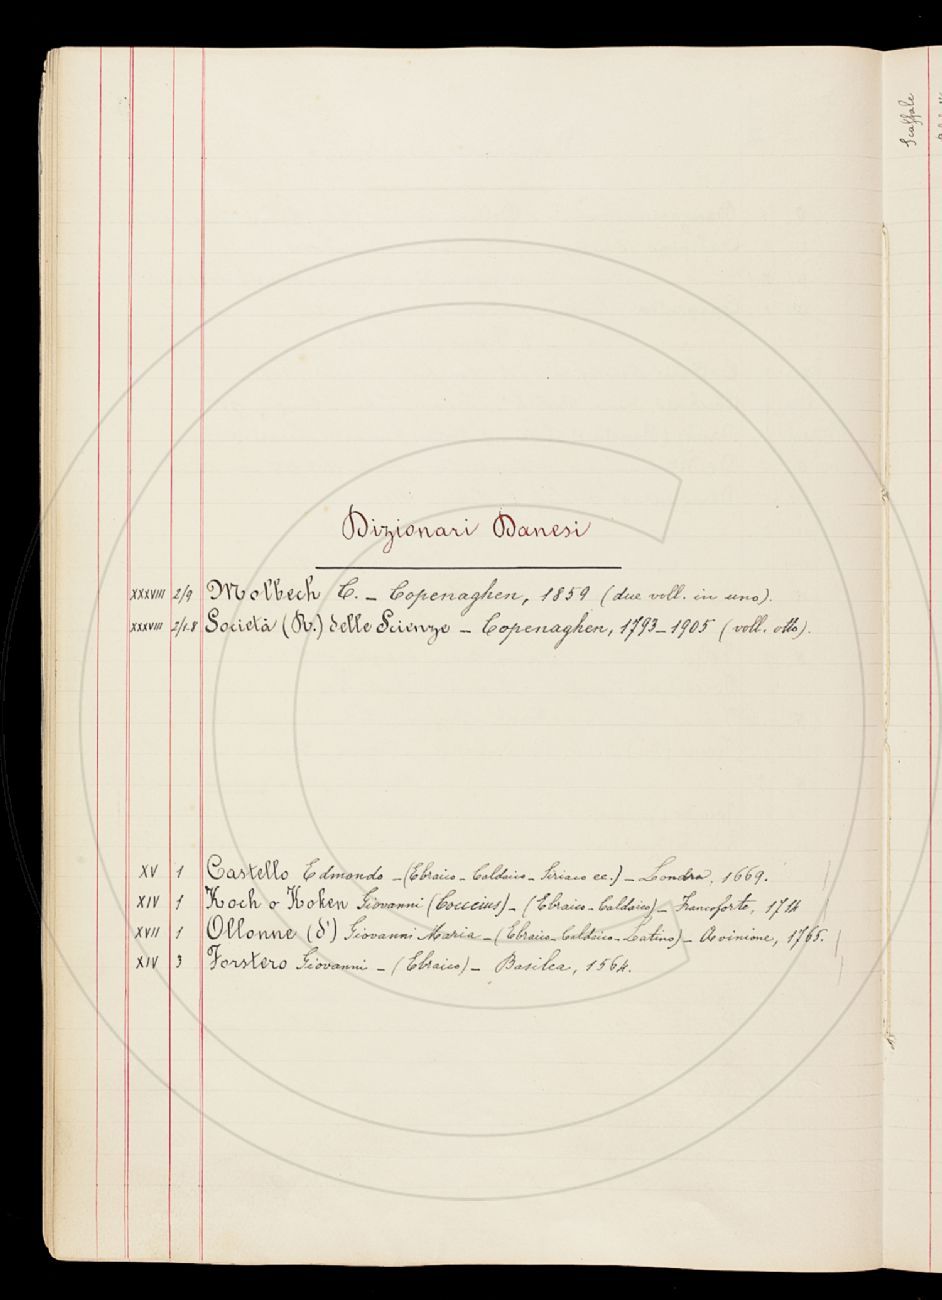 Scaffale
Dizionari Danesi
XXXVIII 2/9 Molbech C. – Copenaghen, 1859 (due voll. in uno).
XXXVIII 2/1-8 Società (R.) delle Scienze – Copenaghen, 1793–1905 (voll. otto).
XV 1 Castello Edmondo – (Ebraico – Caldaico – Siriaco ec.) – Londra, 1669.
XIV 1 Koch o Koken Giovanni (Cocceius) – (Ebraico – Caldaico) – Francoforte, 1714
XVII 1 Ollonne (d') Giovanni Maria – (Ebraico – Caldaico – Latino) – Avinione, 1765.
XIV 3 Forstero Giovanni – (Ebraico) – Basilea, 1564.